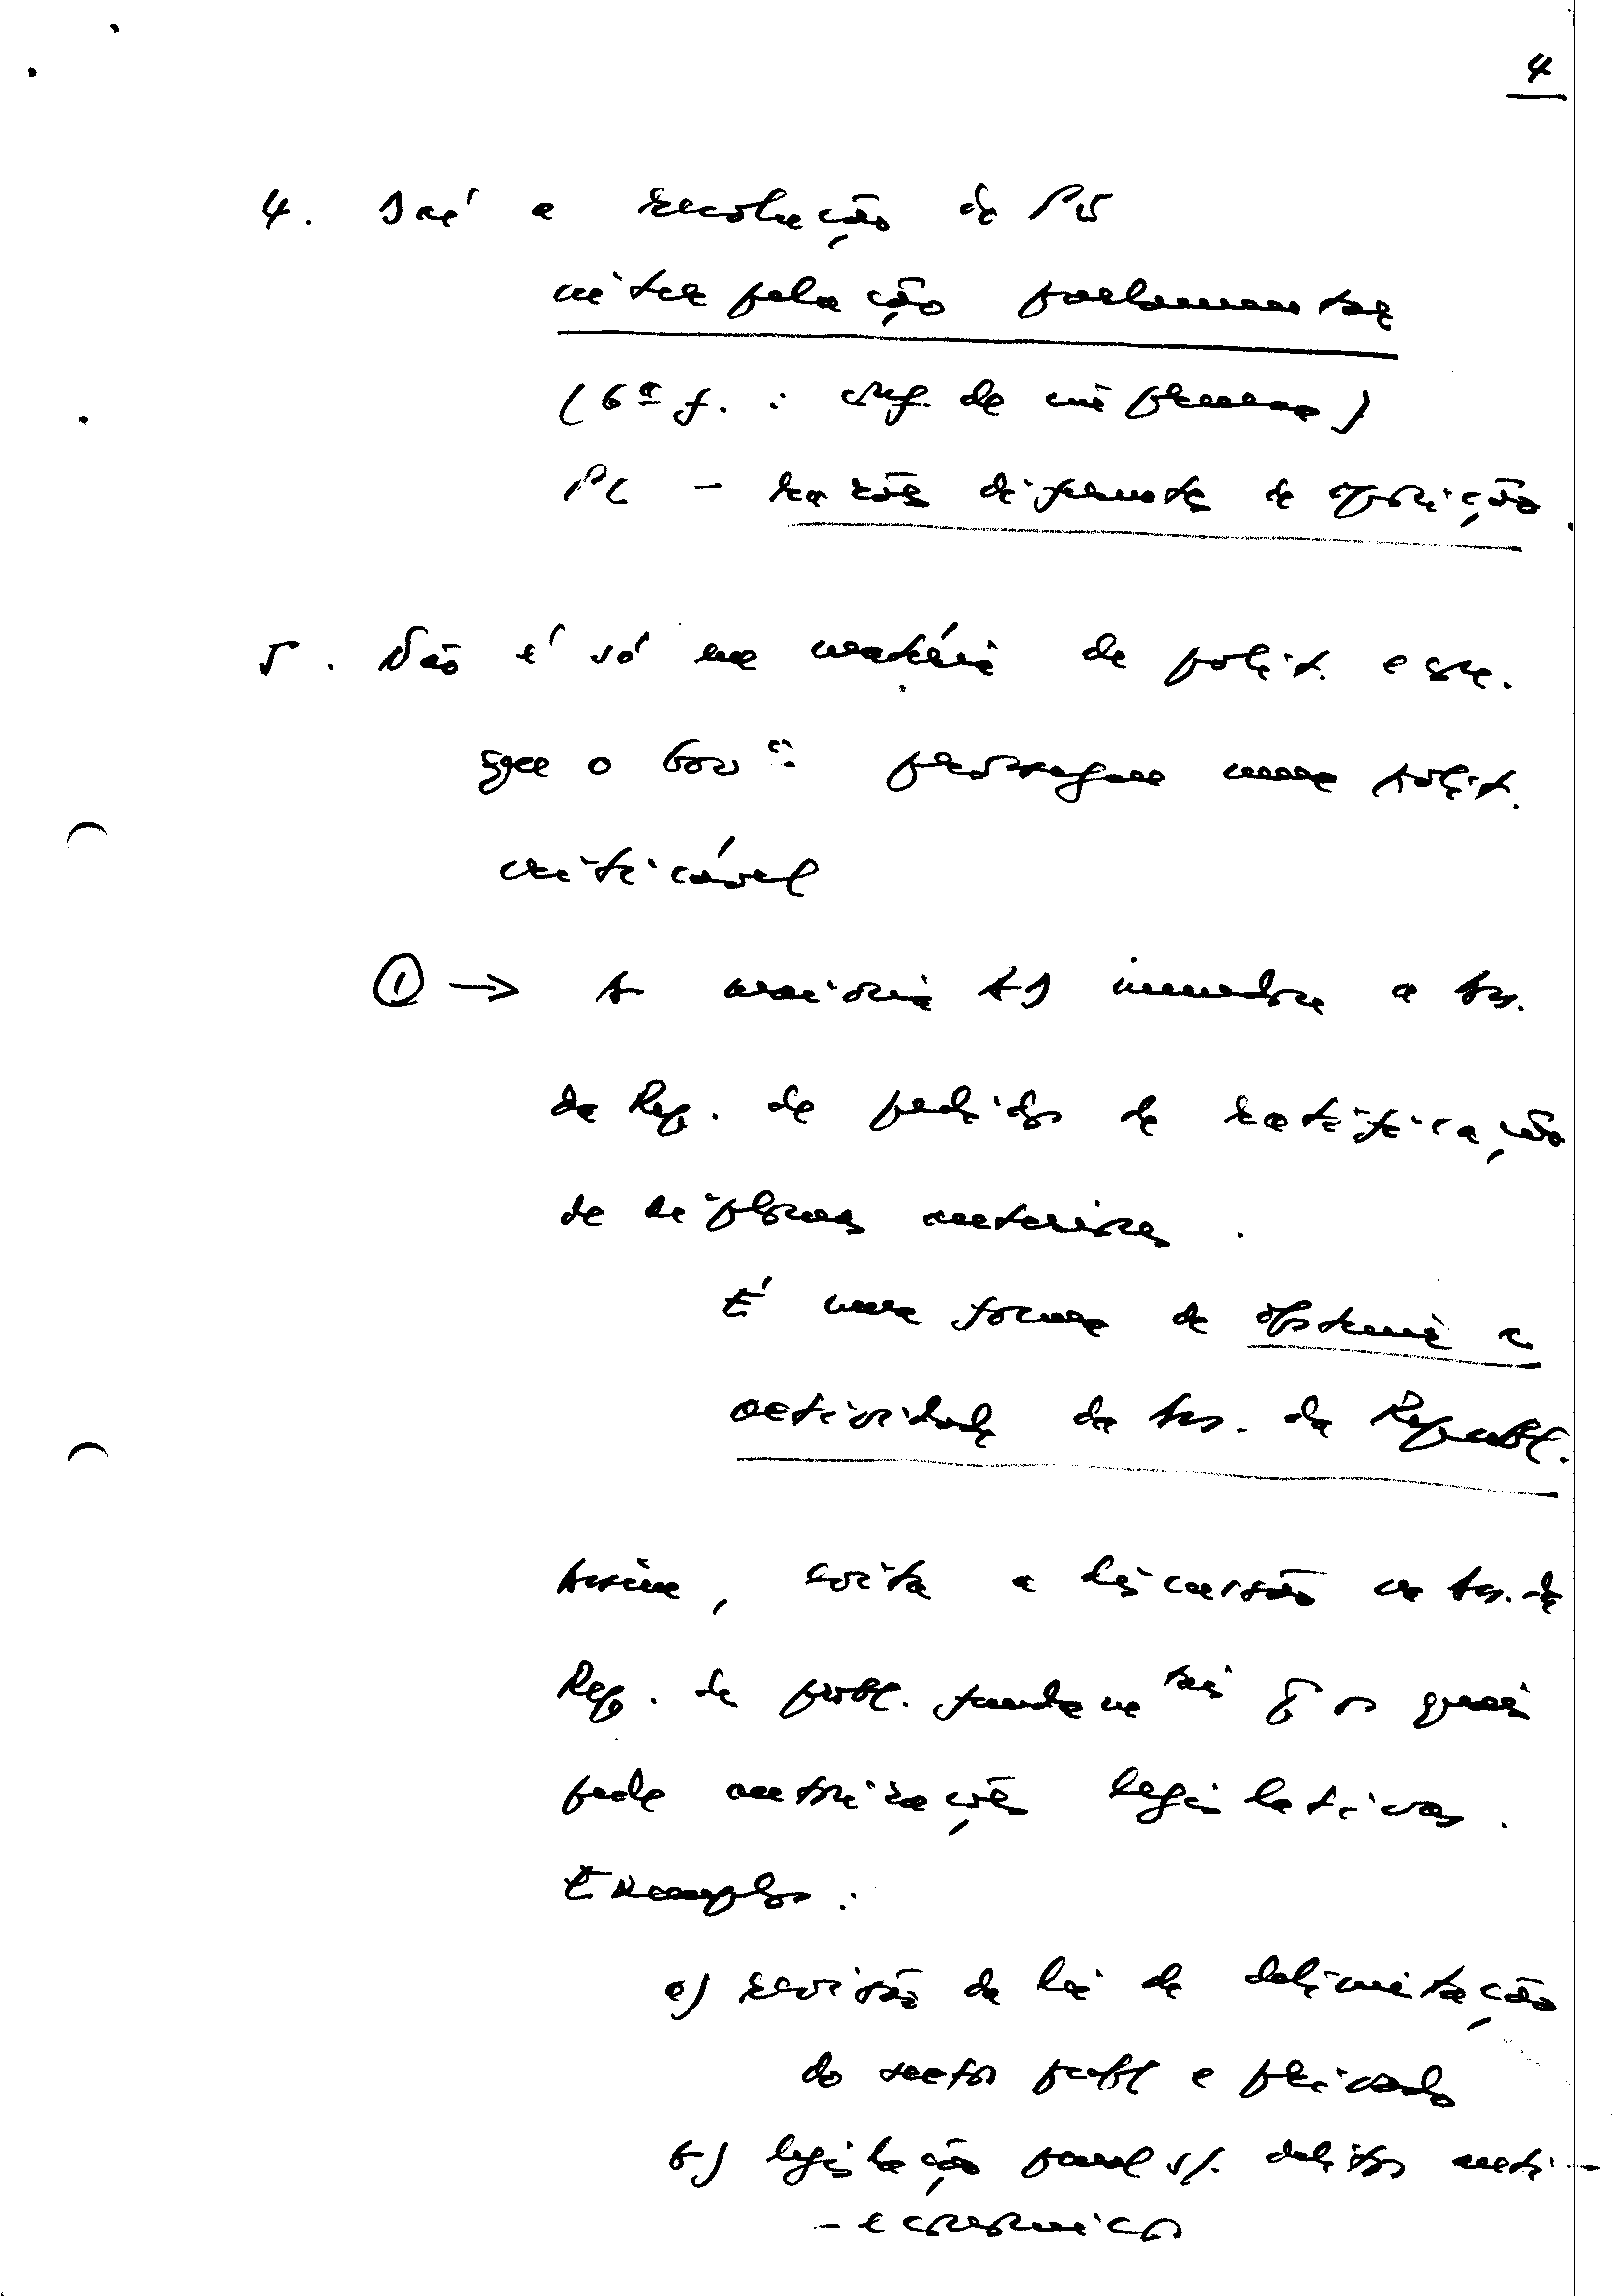 4
4. Daí a resolução do PS
interpelação parlamentar
(6ª f. : conf. de imprensa)
PC – razões diferentes de oposição
5. Não é só na matéria de polít. econ.
que o Govº prossegue uma polít.
criticável
① → A maioria AD inundou a Ass.
da Rep. de pedidos de ratificação
de diplomas anteriores.
É uma forma de obstruir a
actividade da Ass. da Republ.
Assim, evita a discussão na Ass. da
Rep. de probl. fundamentais p/ os quais
pede autorizações legislativas.
Exemplos:
a) revisão da lei de delimitação
do sector publ e privado
b) legislação penal s/. delitos anti-
-económicos